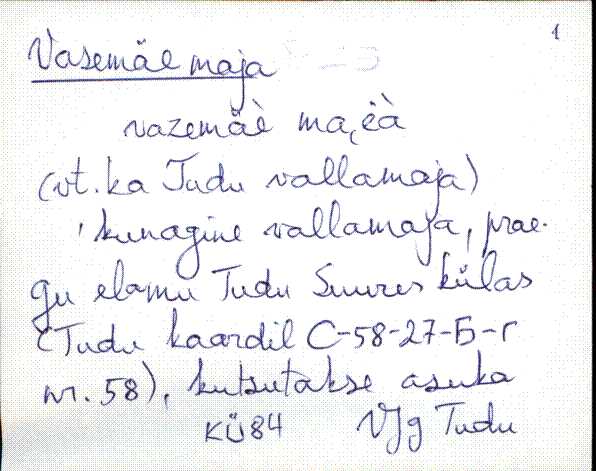 1
Vasemäe maja
vazemäè ma,ėà
(vt. ka Tudu vallamaja)
'kunagine vallamaja, prae-
gu elamu Tudu Suures külas
(Tudu kaardil C-58-27-Б-г
nr. 58), kutsutakse asuka
KÜ84 VJg Tudu